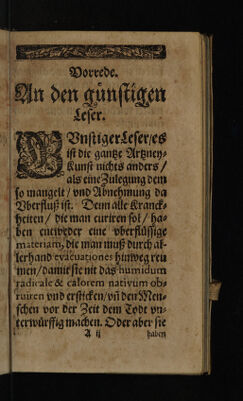 Vorrede.
An den günstigen
Leser.
GUnstiger Leser / es
ist die gantze Artzney-
Kunst nichts anders /
als eine Zulegung dem
so mangelt / vnd Abnehmung da
Vberfluß ist. Denn alle Kranck-
heiten / die man curiren sol / ha-
ben entweder eine vberflüssige
materiam, die man muß durch al-
lerhand evacuationes hinweg reu
men / damit sie nit das humidum
radicale & calorem nativum ob-
ruiren vnd ersticken / vñ den Men-
schen vor der Zeit dem Tod vn-
terwürffig machen. Oder aber sie
A ij haben